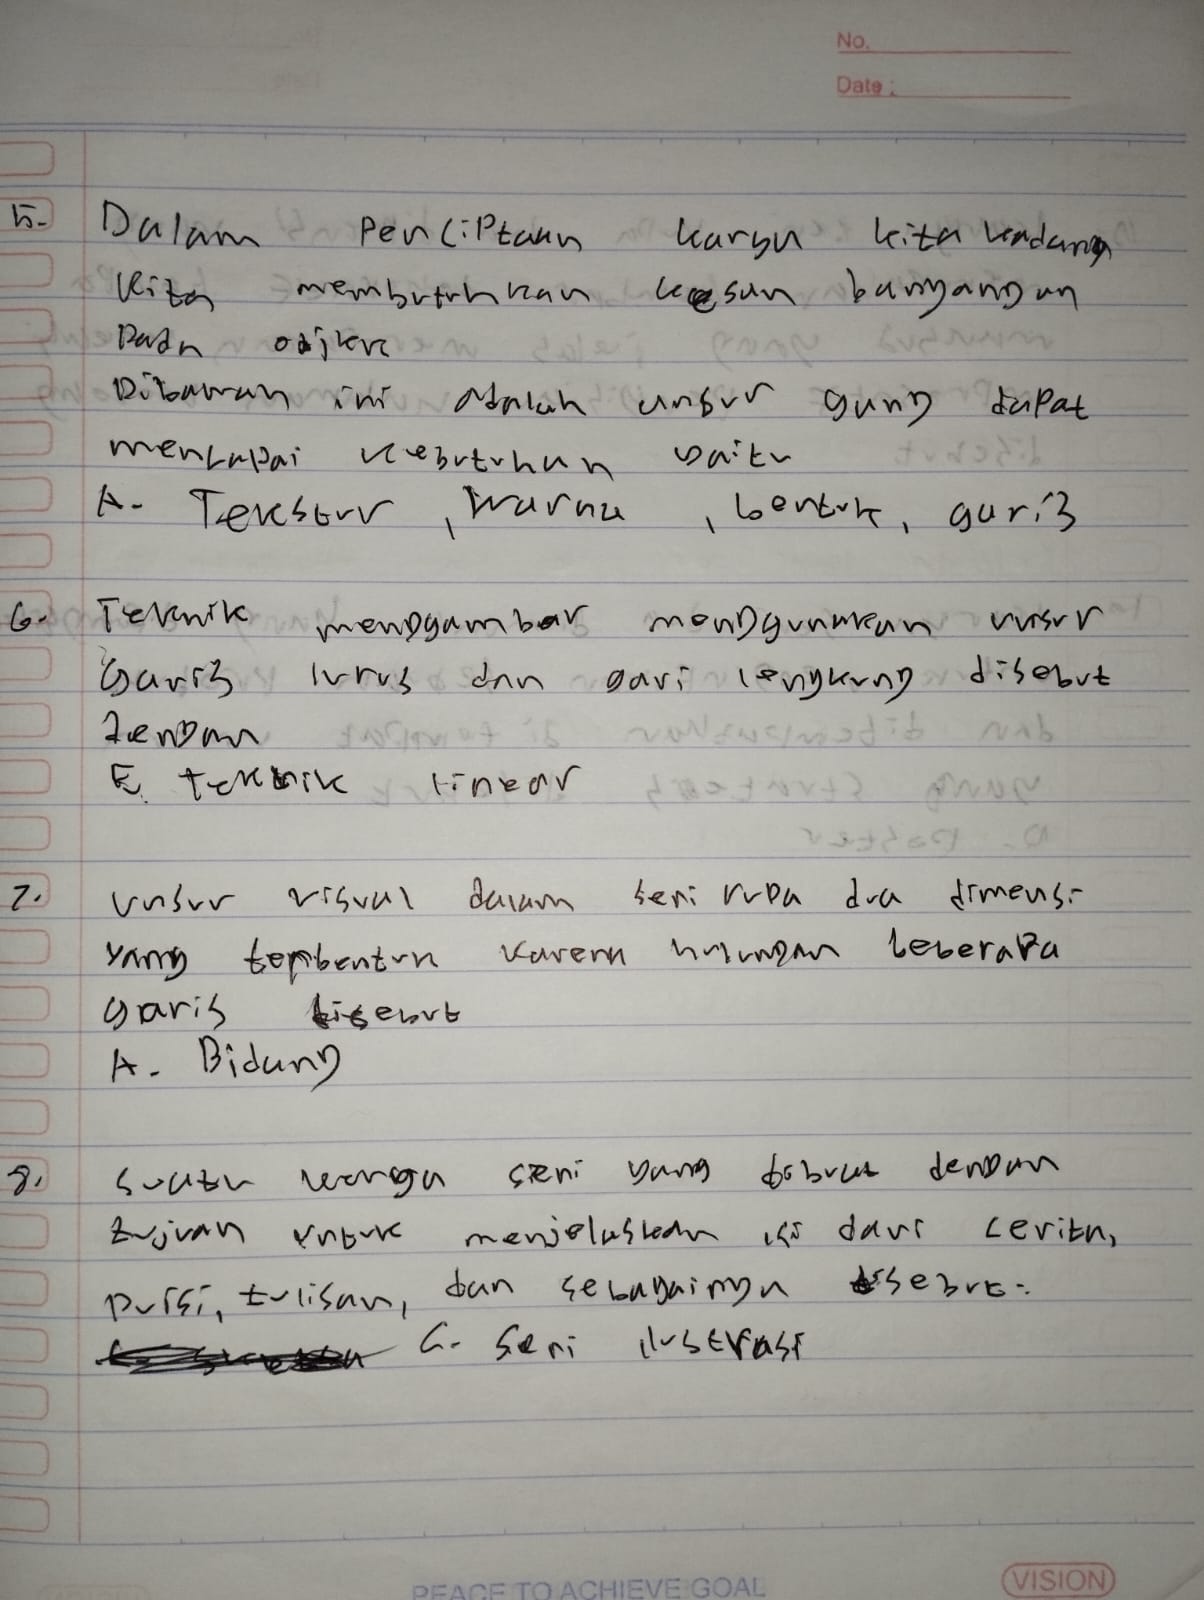 No.
Date :
5. Dalam Penciptaan karya kita kadang
kita membutuhkan kesan bayangan
Pada objek
Dibawah ini adalah unsur yang dapat
mencapai kebutuhan yaitu
A. Tekstur, warna, bentuk, garis
6. Teknik menggambar menggunakan unsur
garis lurus dan gari lengkung disebut
dengan
E. teknik linear
7. unsur visual dalam seni rupa dua dimensi
yang terbentuk karena hubungan beberapa
garis disebut
A. Bidang
8. Suatu karya seni yang dibuat dengan
tujuan untuk menjelaskan isi dari cerita,
puisi, tulisan, dan sebagainya disebut:
C. Seni ilustrasi
PEACE TO ACHIEVE GOAL
VISION